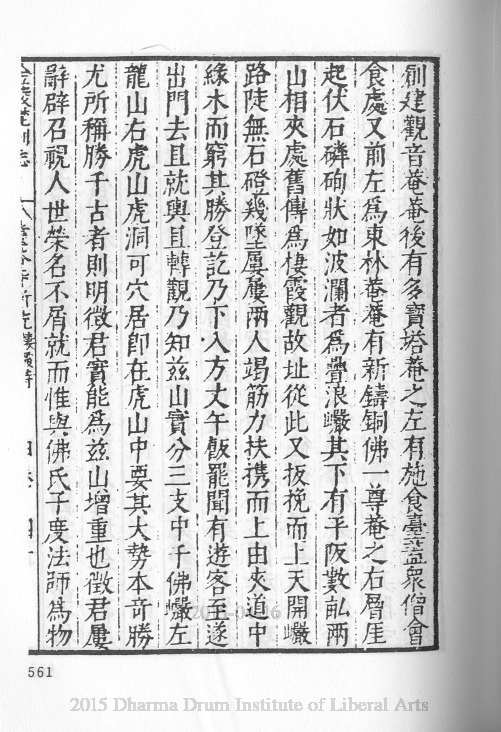 創建觀音菴菴後有多寶塔菴之左有施食臺蓋眾僧會
食處又前左爲東林菴菴有新鑄銅佛一尊菴之右層崖
起伏石磷砢狀如波瀾者爲疊浪巘其下有平阪數畝兩
山相夾處舊傳爲棲霞觀故址從此又扳挽而上天開巘
路陡無石磴幾墜屢屢兩人竭筋力扶携而上由夾道中
緣木而窮其勝登訖乃下入方丈午飯罷聞有遊客至遂
出門去且就輿且轉觀乃知兹山實分三支中千佛巘左
龍山右虎山虎洞可穴居卽在虎山中要其大勢本奇勝
尤所稱勝千古者則明徵君實能爲兹山增重也徵君屢
辭辟召視人世榮名不屑就而惟與佛氏子度法師爲物
561
2015 Dharma Drum Institute of Liberal Arts